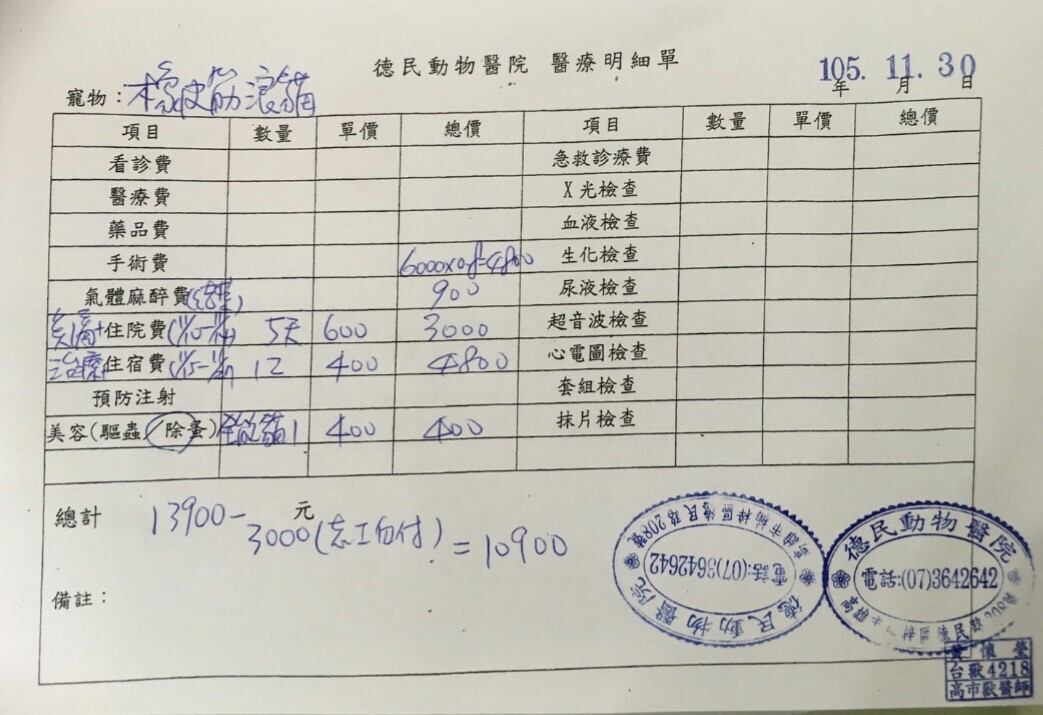 德民動物醫院 醫療明細單
105.11.30
年 月 日
寵物：橡皮筋浪貓
項目 數量 單價 總價 項目 數量 單價 總價
看診費 急救診療費
醫療費 X光檢查
藥品費 血液檢查
手術費 6000x0.8=4800 生化檢查
氣體麻醉費 900 尿液檢查
住院費 5天 600 3000 超音波檢查
治療+住宿費 12 400 4800 心電圖檢查
預防注射 套組檢查
美容(驅蟲/除蚤) 1 400 400 抹片檢查
總計 13900- 元
3000(志工自付) = 10900
備註：
德民動物醫院
電話:(07)3642642
高雄市楠梓區德民路208號
德民動物醫院
電話:(07)3642642
台獸4218
高市獸醫師